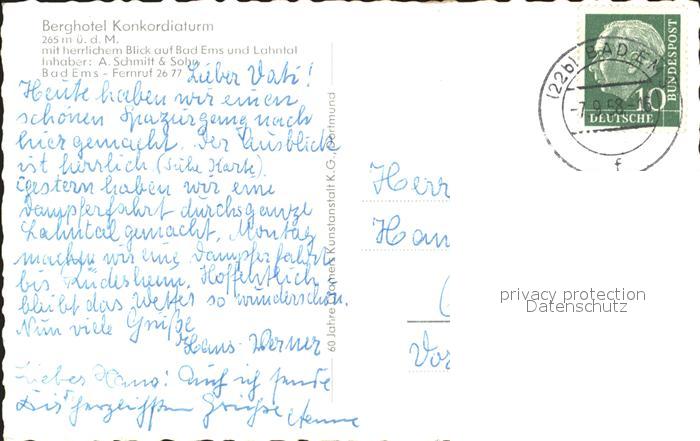 Berghotel Konkordiaturm
265 m ü. d. M.
mit herrlichem Blick auf Bad Ems und Lahntal
Inhaber: A. Schmitt & Sohn
Bad Ems - Fernruf 26 77
Lieber Vati!
Heute haben wir einen
schönen Spaziergang nach
hier gemacht. Der Ausblick
ist herrlich (siehe Karte).
Gestern haben wir eine
Dampferfahrt durchs ganze
Lahntal gemacht. Montag
machen wir eine Dampferfahrt
bis Rüdesheim. Hoffentlich
bleibt das Wetter so wunderschön.
Nun viele Grüße
Hans-Werner
Liebes Hans! Auch ich sende
Dir herzlichsten Grüße
60 Jahre Cramers Kunstanstalt K.G., Dortmund
(22b) BAD EMS
-7.9.58-
f
10
DEUTSCHE
BUNDESPOST
Herr
Han
Vor
privacy protection
Datenschutz